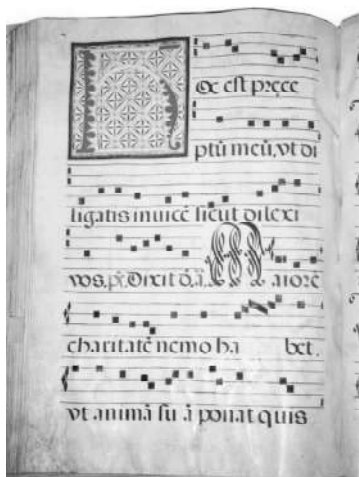 Hoc est pręce
ptū meū, vt di
ligatis inuicē sicut dilexi
vos. Dixit d. ā. Maiorē
charitatē nemo ha bet.
vt animā su ā ponat quis